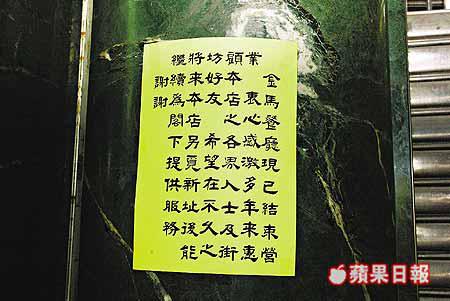 金馬餐廳現已結束營
業 衷心感激多年來惠
顧本店之各界人士及街
坊好友 希望在不久之
將來本店另覓新址後能
繼續為閣下提供服務
謝謝
蘋果日報